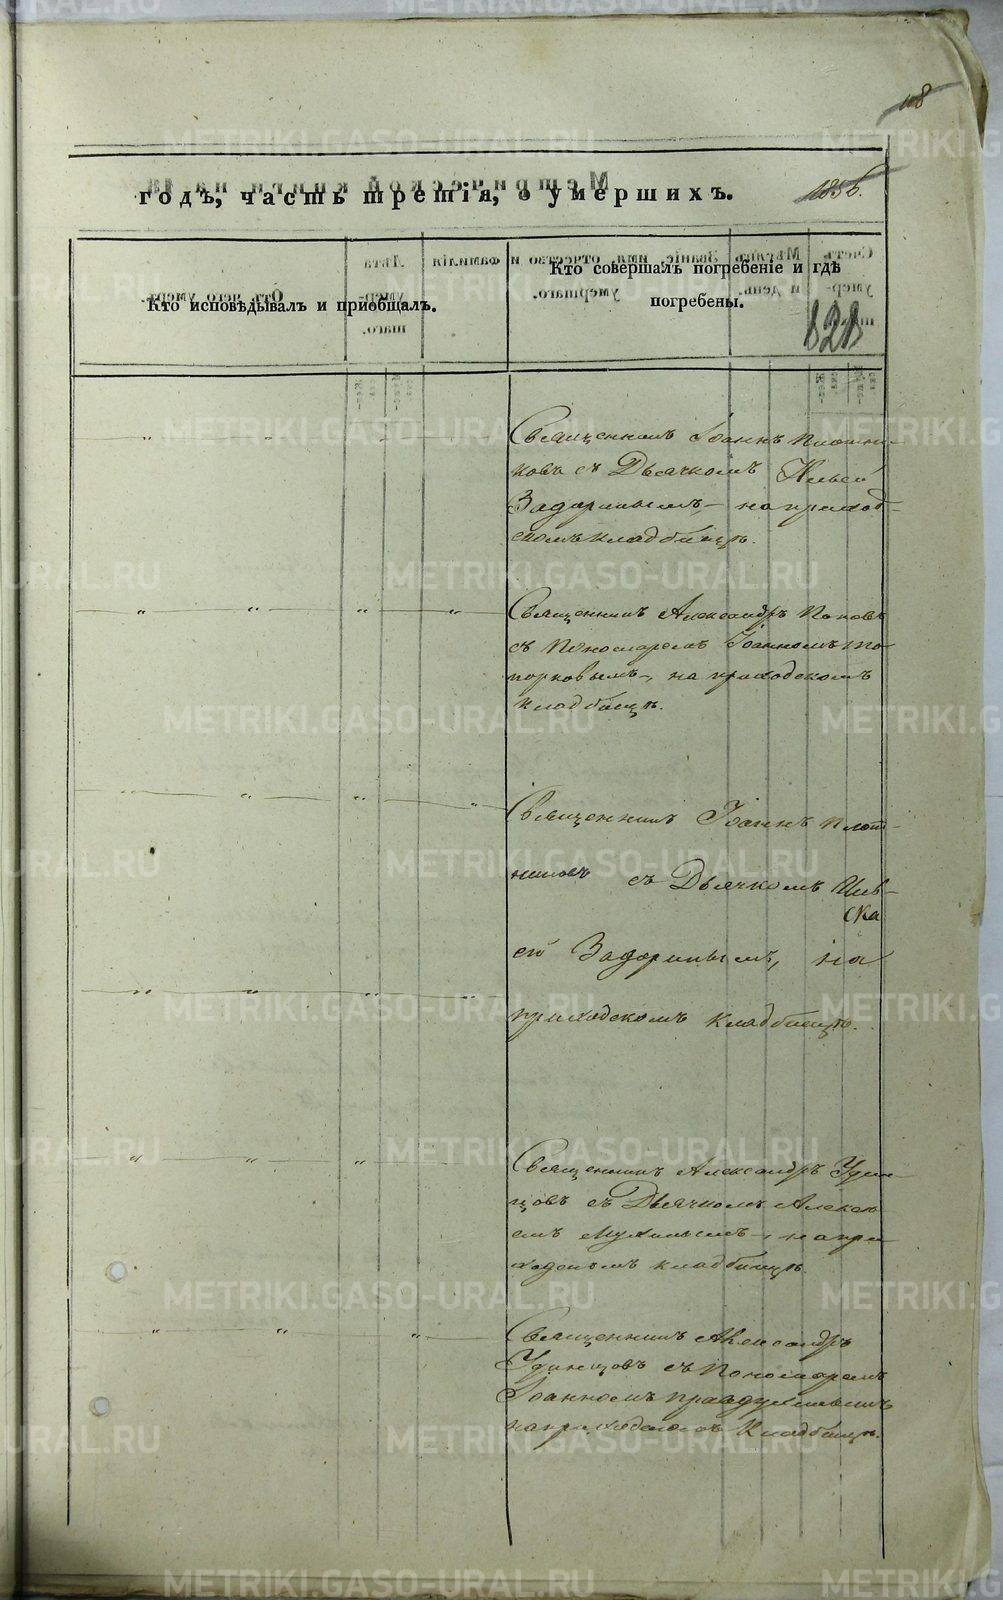 118
годъ, часть третія, о умершихъ.
1856.
Кто исповѣдывалъ и приобщалъ.
Кто совершалъ погребеніе и гдѣ
погребены.
828
Священникъ Іоаннъ Плотни-
ковъ съ Дьячкомъ
Задоринымъ, на приход-
скомъ кладбищѣ.
Священникъ Александръ Поповъ
съ Пономаремъ Іоанномъ То-
порковымъ, на приходскомъ
кладбищѣ.
Священникъ Іоаннъ Плот-
никовъ съ Дьячкомъ
Задоринымъ, на
приходскомъ кладбищѣ.
Священникъ Александръ Удин-
цовъ съ Дьячкомъ Алексѣ
емъ на при
ходскомъ кладбищѣ.
Священникъ Александръ
Удинцовъ съ Пономаремъ
Іоанномъ
на приходскомъ кладбищѣ.
METRIKI.GASO-URAL.RU